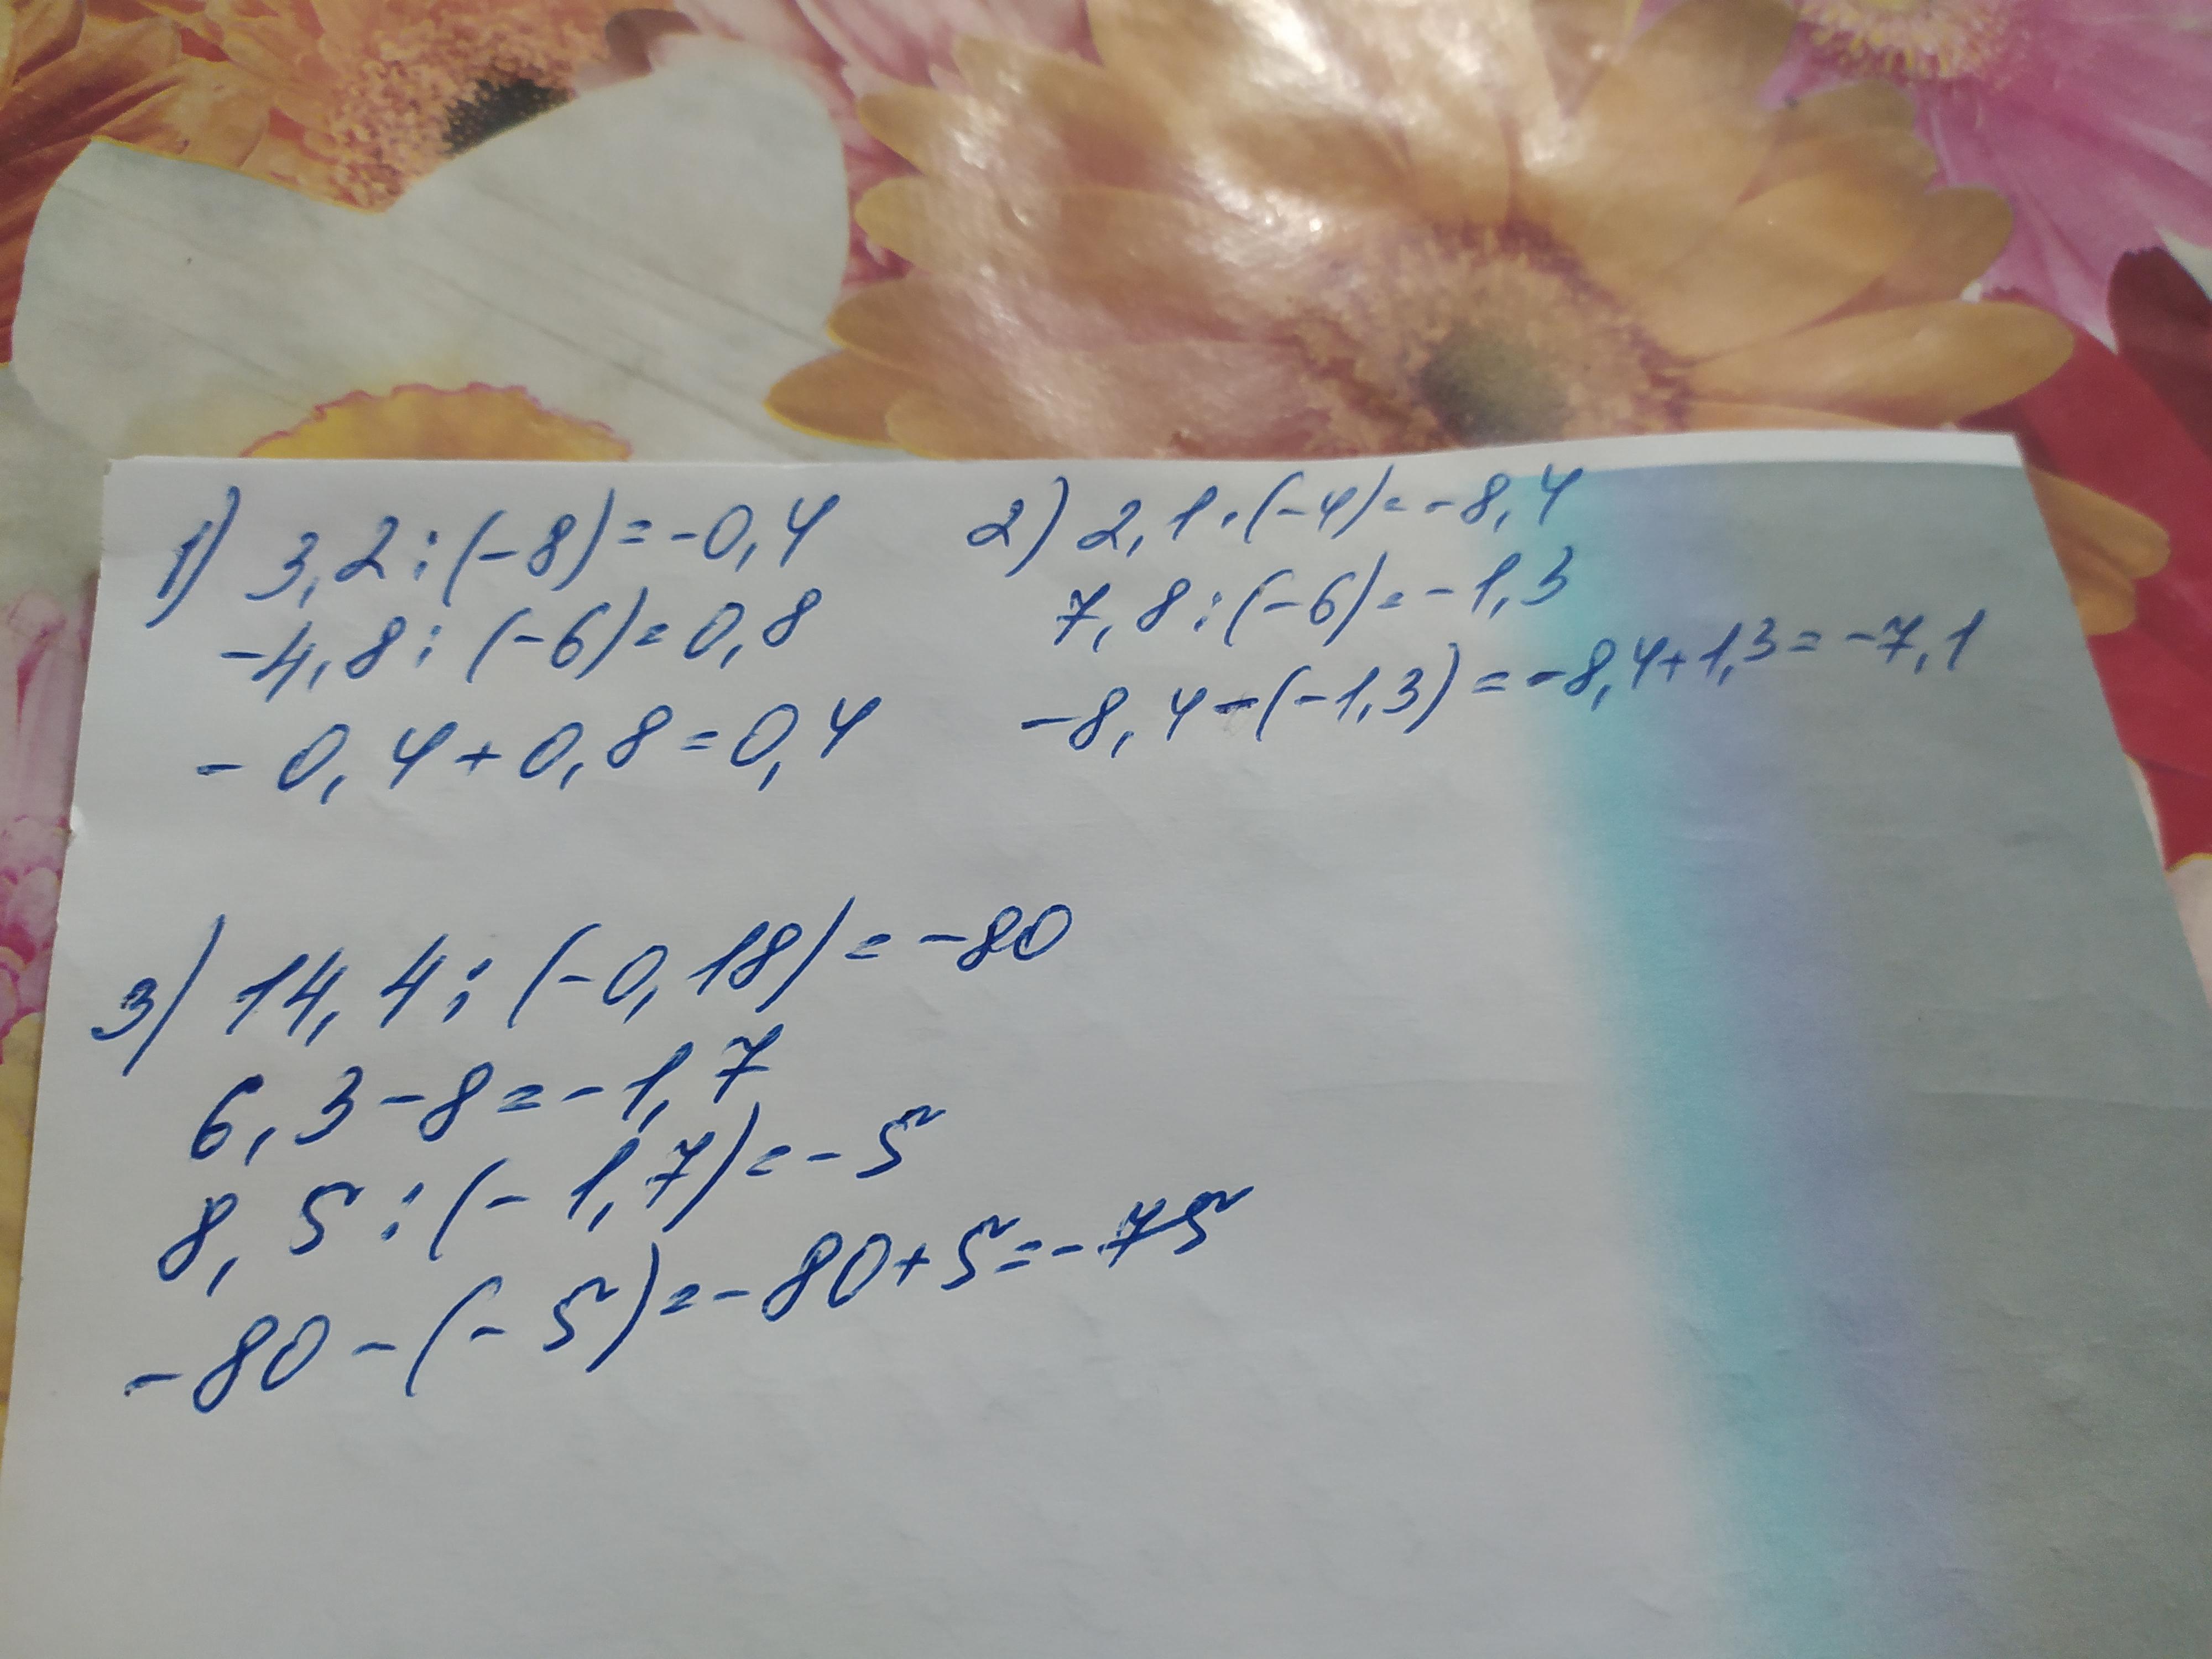 1) 3,2:(-8)=-0,4
-4,8:(-6)=0,8
-0,4+0,8=0,4
2) 2,1·(-4)=-8,4
7,8:(-6)=-1,3
-8,4-(-1,3)=-8,4+1,3=-7,1
3) 14,4:(-0,18)=-80
6,3-8=-1,7
8,5:(-1,7)=-5
-80-(-5)=-80+5=-75